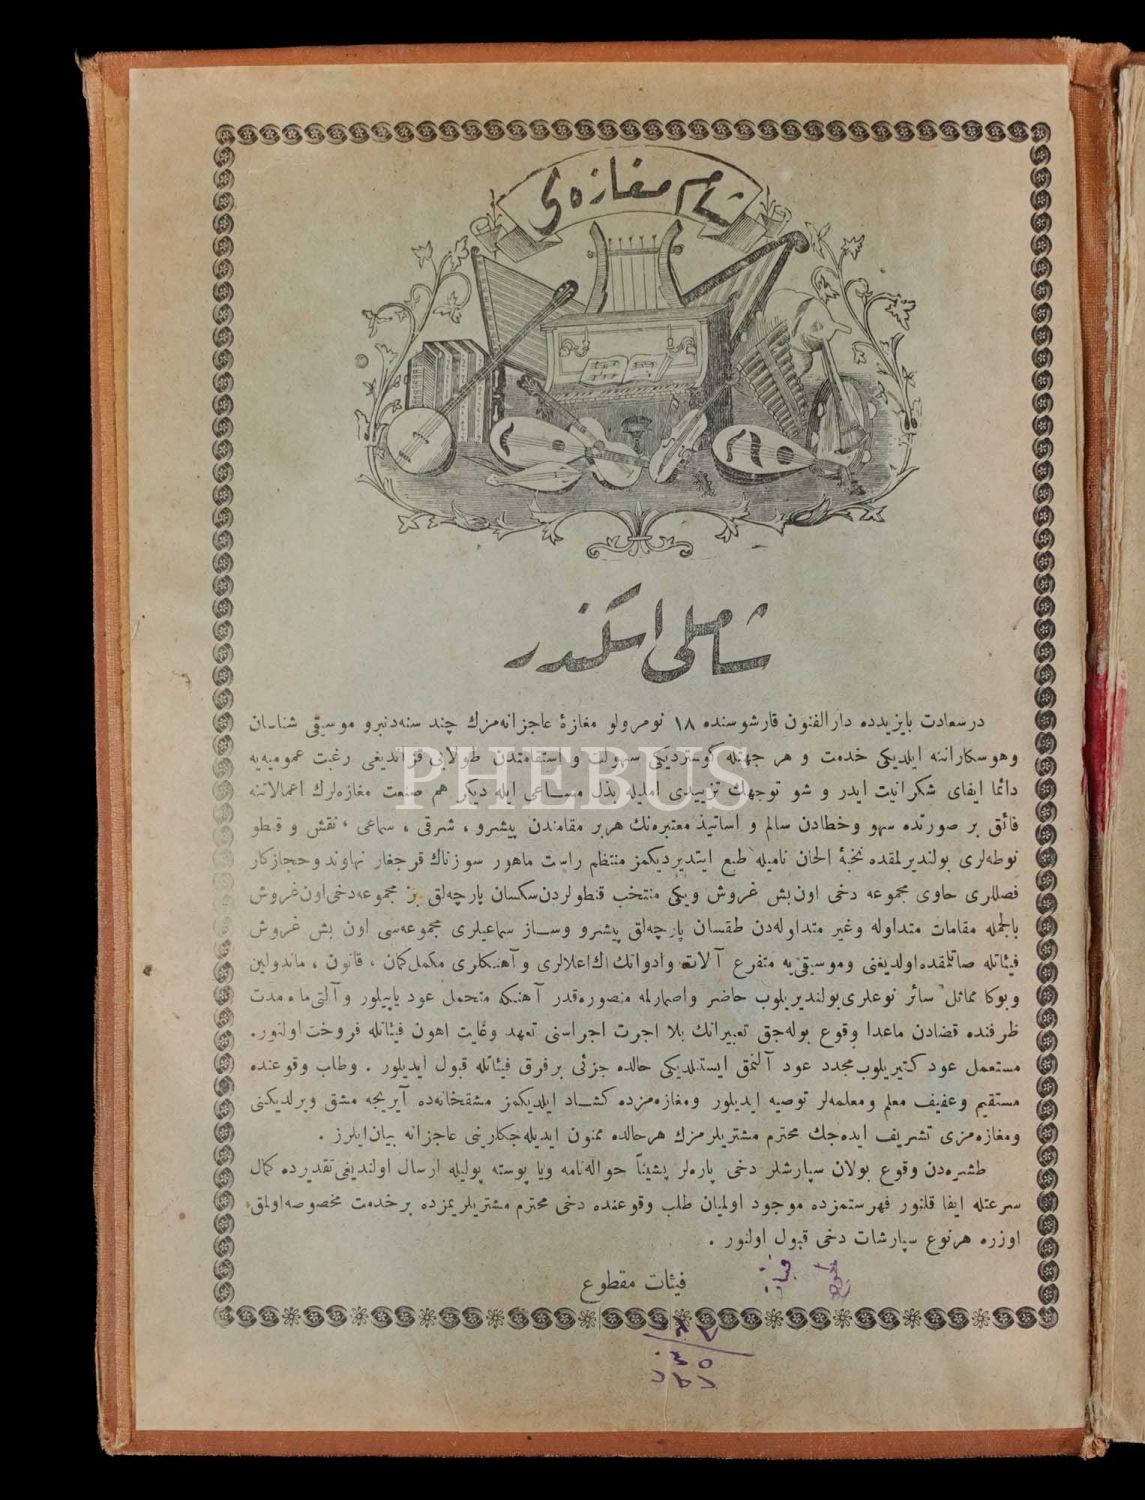 شام مغازه‌سی
شاملی اسکندر
درسعادت بایزیدده دارالفنون قارشوسنده ١٨ نومرولو مغازهٔ عاجزانه‌مزك چند سنه‌دنبرو موسیقی شناسان
وهوسکاراننه ایلدیکی خدمت و هر جهتله کوستردیکی سهولت و استقامتدن طولایی قزاندیغی رغبت عمومیه‌یه
PHEBUS
دائما ایفای شکرانیت ایدر و شو توجهك تزییدی املیله بذل مساعی ایله دیکر هم صنعت مغازه‌لرك اعمالاتنه
فائق بر صورتده سهو وخطادن سالم و اساتیذ معتبره‌نك هربر مقامدن پیشرو ، شرقی ، سماعی ، نقش و قنطو
نوطه‌لری بولندیرلمقده نخبهٔ الحان نامیله طبع ایتدیردیکمز منتظم راست ماهور سوزناك قرجغار نهاوند وحجازکار
فصللری حاوی مجموعه دخی اون‌بش غروش ویکی منتخب قنطولردن سکسان پارچه‌لق بز مجموعه‌دخی‌اون‌غروش
بالجمله مقامات متداوله وغیر متداوله‌دن طقسان پارچه‌لق پیشرو وساز سماعیلری مجموعه‌سی اون بش غروش
فیئاتله صاتلمقده‌اولدیغنی وموسیقی‌یه متفرع آلات وادواتك اك‌اعلالری و آهنکلری مکمل کمان ، قانون ، ماندولین
وبوکا مماثل سائر نوعلری‌بولندیریلوب حاضر واصمارلمه منصوره‌قدر آهنکه متحمل عود یاپیلور و آلتی‌ماه‌مدت
ظرفنده قضادن ماعدا وقوع بوله‌جق تعمیراتك بلا اجرت اجراسنی تعهد وغایت اهون فیئاتله فروخت‌اولنور.
مستعمل عود کتیریلوب‌مجدد عود آلنمق ایستنلدیکی حالده جزئی برفرق فیئاتله قبول ایدیلور . وطلب وقوعنده
مستقیم وعفیف معلم ومعلمه‌لر توصیه ایدیلور ومغازه‌مزده کشاد ایلدیکمز مشقخانه‌ده آیریجه مشق ویرلدیکنی
ومغازه‌مزی تشریف ایده‌جك محترم مشتریلرمزك هرحالده ممنون ایدیله‌جکلرینی عاجزانه بیان‌ایلرز .
طشره‌دن وقوع بولان سپارشلر دخی پاره‌لر پشیناً حواله‌نامه ویا پوسته پولیله ارسال اولندیغی‌تقدیرده کمال
سرعتله ایفا قلنور فهرستمزده موجود اولمیان طلب وقوعنده دخی محترم مشتریلریمزده برخدمت مخصوصه‌اولمق
اوزره هرنوع سپارشات دخی قبول اولنور .
فیئات مقطوع